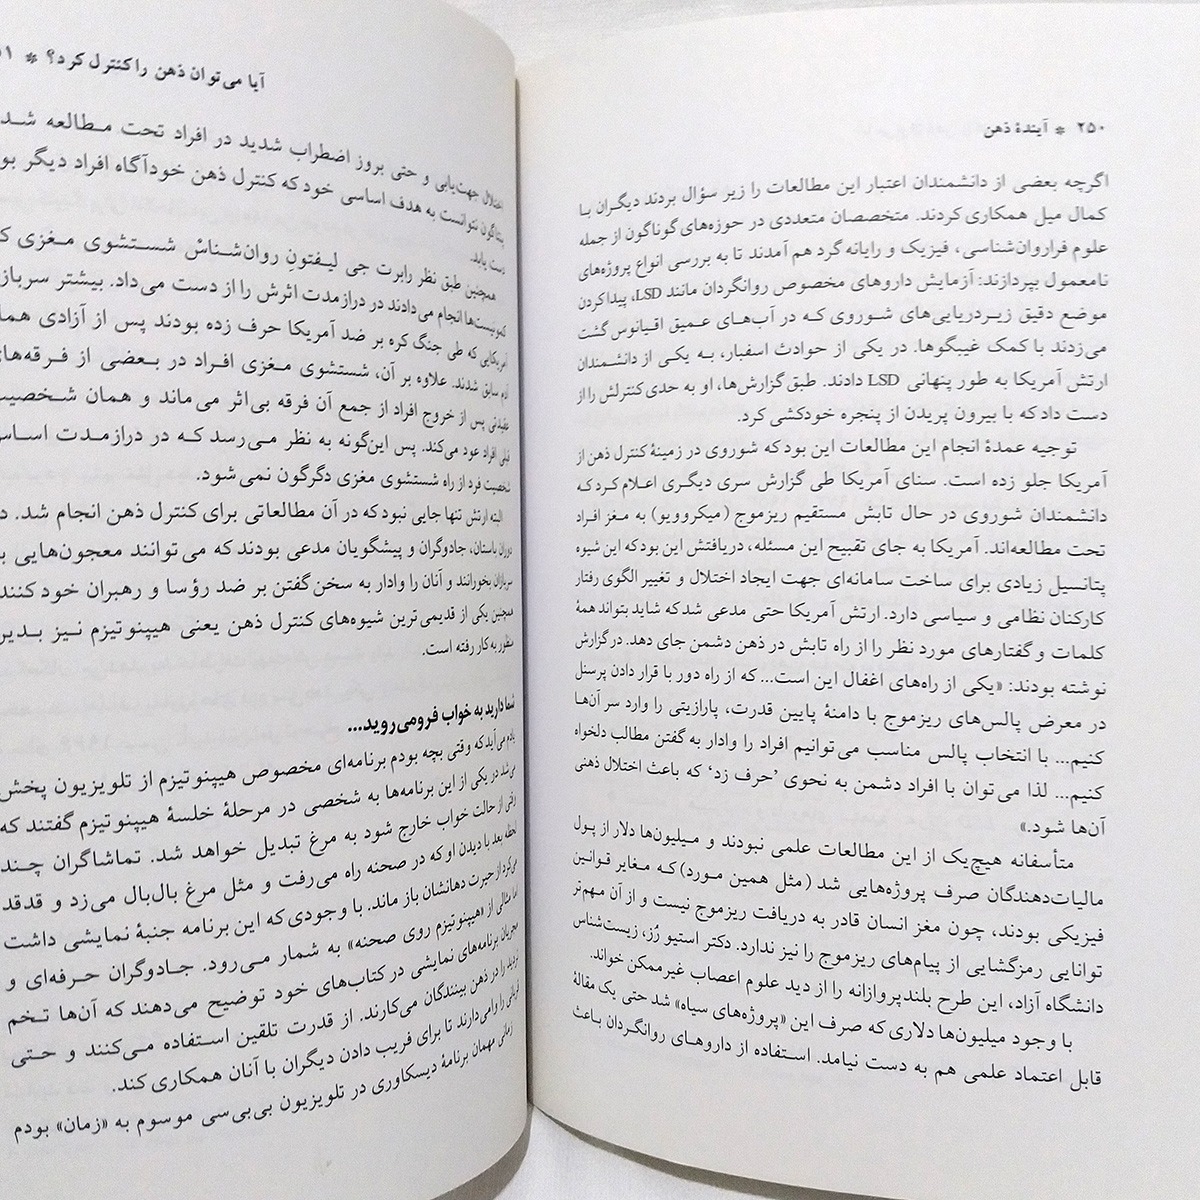 ۲۵۰ * آیندهٔ ذهن
اگرچه بعضی از دانشمندان اعتبار این مطالعات را زیر سؤال بردند دیگران با
کمال میل همکاری کردند. متخصصان متعددی در حوزه‌های گوناگون از جمله
علوم فراروان‌شناسی، فیزیک و رایانه گرد هم آمدند تا به بررسی انواع پروژه‌های
نامعمول بپردازند: آزمایش داروهای مخصوص روانگردان مانند LSD، پیدا کردن
موضع دقیق زیردریایی‌های شوروی که در آب‌های عمیق اقیانوس گشت
می‌زدند با کمک غیبگوها. در یکی از حوادث اسفبار، به یکی از دانشمندان
ارتش آمریکا به طور پنهانی LSD دادند. طبق گزارش‌ها، او به حدی کنترلش را از
دست داد که با بیرون پریدن از پنجره خودکشی کرد.
توجیه عمدهٔ انجام این مطالعات این بود که شوروی در زمینهٔ کنترل ذهن از
آمریکا جلو زده است. سنای آمریکا طی گزارش سری دیگری اعلام کرد که
دانشمندان شوروی در حال تابش مستقیم ریزموج (میکروویو) به مغز افراد
تحت مطالعه‌اند. آمریکا به جای تقبیح این مسئله، دریافتش این بود که این شیوه
پتانسیل زیادی برای ساخت سامانه‌ای جهت ایجاد اختلال و تغییر الگوی رفتار
کارکنان نظامی و سیاسی دارد. ارتش آمریکا حتی مدعی شد که شاید بتواند همهٔ
کلمات و گفتارهای مورد نظر را از راه تابش در ذهن دشمن جای دهد. در گزارش
نوشته بودند: «یکی از راه‌های اغفال این است... که از راه دور با قرار دادن پرسنل
در معرض پالس‌های ریزموج با دامنهٔ پایین قدرت، پارازیتی را وارد سر آن‌ها
کنیم... با انتخاب پالس مناسب می‌توانیم افراد را وادار به گفتن مطالب دلخواه
کنیم... لذا می‌توان با افراد دشمن به نحوی ‘حرف زد’ که باعث اختلال ذهنی
آن‌ها شود.»
متأسفانه هیچ‌یک از این مطالعات علمی نبودند و میلیون‌ها دلار از پول
مالیات‌دهندگان صرف پروژه‌هایی شد (مثل همین مورد) که مغایر قوانین
فیزیکی بودند، چون مغز انسان قادر به دریافت ریزموج نیست و از آن مهم‌تر
توانایی رمزگشایی از پیام‌های ریزموج را نیز ندارد. دکتر استیو رُز، زیست‌شناس
دانشگاه آزاد، این طرح بلندپروازانه را از دید علوم اعصاب غیرممکن خواند.
با وجود میلیون‌ها دلاری که صرف این «پروژه‌های سیاه» شد حتی یک مقالهٔ
قابل اعتماد علمی هم به دست نیامد. استفاده از داروهای روانگردان باعث
آیا می‌توان ذهن را کنترل کرد؟ *
اختلال جهت‌یابی و حتی بروز اضطراب شدید در افراد تحت مطالعه شد
پنتاگون نتوانست به هدف اساسی خود که کنترل ذهن خودآگاه افراد دیگر
دست یابد.
همچنین طبق نظر رابرت جی لیفتونِ روان‌شناسْ شستشوی مغزی
کمونیست‌ها انجام می‌دادند در درازمدت اثرش را از دست می‌داد. بیشتر
آمریکایی که طی جنگ کره بر ضد آمریکا حرف زده بودند پس از آزادی
آدم سابق شدند. علاوه بر آن، شستشوی مغزی افراد در بعضی از فرقه‌های
عقیدتی پس از خروج افراد از جمع آن فرقه بی‌اثر می‌ماند و همان شخصیت
قبلی افراد عود می‌کند. پس این‌گونه به نظر می‌رسد که در درازمدت اساس
شخصیت فرد از راه شستشوی مغزی دگرگون نمی‌شود.
البته ارتش تنها جایی نبود که در آن مطالعاتی برای کنترل ذهن انجام شد.
دوران باستان، جادوگران و پیشگویان مدعی بودند که می‌توانند معجون‌هایی
سربازان بخورانند و آنان را وادار به سخن‌گفتن بر ضد رؤسا و رهبران خود کنند
همچنین یکی از قدیمی‌ترین شیوه‌های کنترل ذهن یعنی هیپنوتیزم نیز بدین
منظور به کار رفته است.
شما دارید به خواب فرو می‌روید...
یادم می‌آید که وقتی بچه بودم برنامه‌ای مخصوص هیپنوتیزم از تلویزیون پخش
می‌شد در یکی از این برنامه‌ها به شخصی در مرحلهٔ خلسهٔ هیپنوتیزم گفتند که
وقتی از حالت خواب خارج شود به مرغ تبدیل خواهد شد. تماشاگران چند
لحظه بعد با دیدن او که در صحنه راه می‌رفت و مثل مرغ بال‌بال می‌زد و قدقد
می‌کرد از حیرت دهانشان باز ماند. با وجودی که این برنامه جنبهٔ نمایشی داشت
اما مثالی از «هیپنوتیزم روی صحنه» به شمار می‌رود. جادوگران حرفه‌ای و
مجریان برنامه‌های نمایشی در کتاب‌های خود توضیح می‌دهند که آن‌ها تخم
تردید را در ذهن بینندگان می‌کارند. از قدرت تلقین استفاده می‌کنند و حتی
قربانی را وامی‌دارند تا برای فریب دادن دیگران با آنان همکاری کند.
زمانی مهمان برنامهٔ دیسکاوری در تلویزیون بی‌بی‌سی موسوم به «زمان» بودم